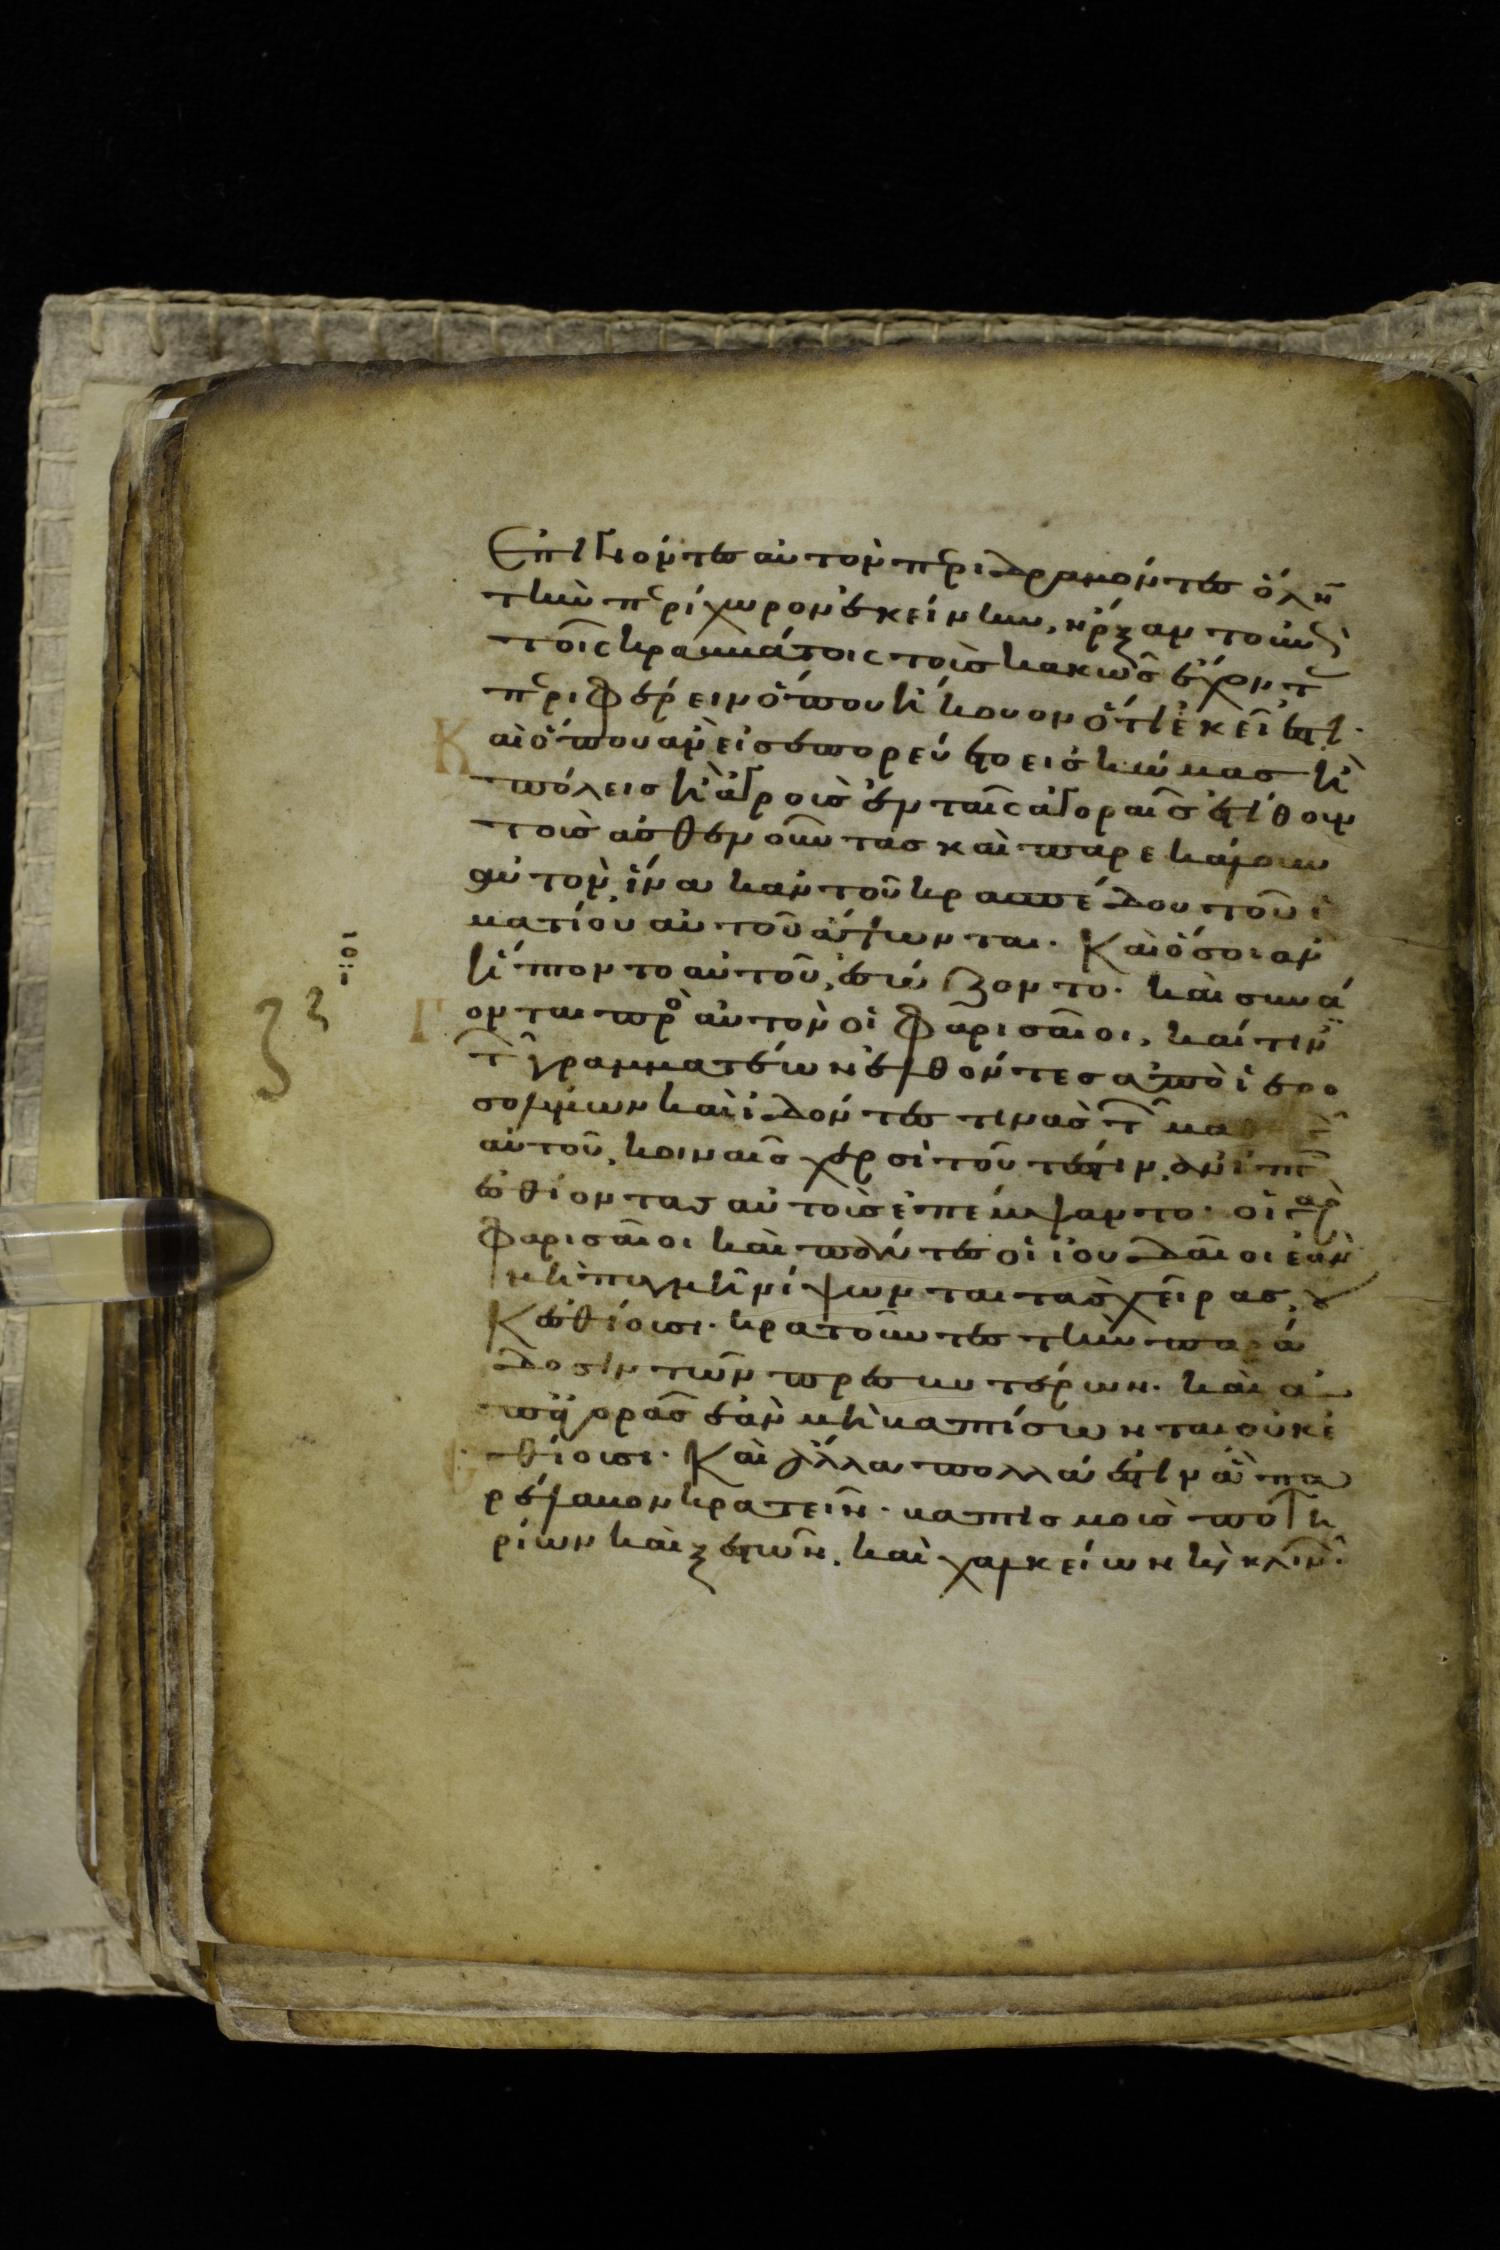 Ἐπιγνόντες αὐτὸν περιδραμόντες ὅλην
τὴν περίχωρον ἐκείνην, ἤρξαντο ἐπὶ
τοῖς κραββάτοις τοὺς κακῶς ἔχοντ
περιφέρειν ὅπου ἤκουον ὅτι ἐκεῖ ἐστι·
Καὶ ὅπου ἂν εἰσεπορεύετο εἰς κώμας ἢ
πόλεις ἢ ἀγροὺς ἐν ταῖς ἀγοραῖς ἐτίθουν
τοὺς ἀσθενοῦντας καὶ παρεκάλουν
αὐτὸν ἵνα κἂν τοῦ κρασπέδου τοῦ ἱ
ματίου αὐτοῦ ἅψωνται· Καὶ ὅσοι ἂν
ἥπτοντο αὐτοῦ, ἐσώζοντο· καὶ συνά
ονται πρὸ αὐτὸν οἱ Φαρισαῖοι, καί τιν
τ γραμματέων ἐλθόντες ἀπὸ ἱερο
σολύμων καὶ ἰδόντες τινὰς τ μα
αὐτοῦ, κοιναῖς χερσὶ τοῦτέστιν, ἀνίπτ
ἐσθίοντας αὐτοὺς ἐπέμψαντο· οἱ γὰρ
Φαρισαῖοι καὶ πάντες οἱ ἰουδαῖοι ἐὰν
μὴ πυγμῇ νίψωνται τὰς χεῖρας, οὐ
Κ ἐσθίουσι· κρατοῦντες τὴν παρά
δοσιν τῶν πρεσβυτέρων· καὶ ἀ
πἀγορᾶς ἐὰν μὴ βαπτίσωνται οὐκ ἐ
σθίουσι· Καὶ ἄλλα πολλά ἐστιν ἃ πα
ρέλαβον κρατεῖν· βαπτισμοὺς ποτη
ρίων καὶ ξεστῶν, καὶ χαλκείων καὶ κλιν